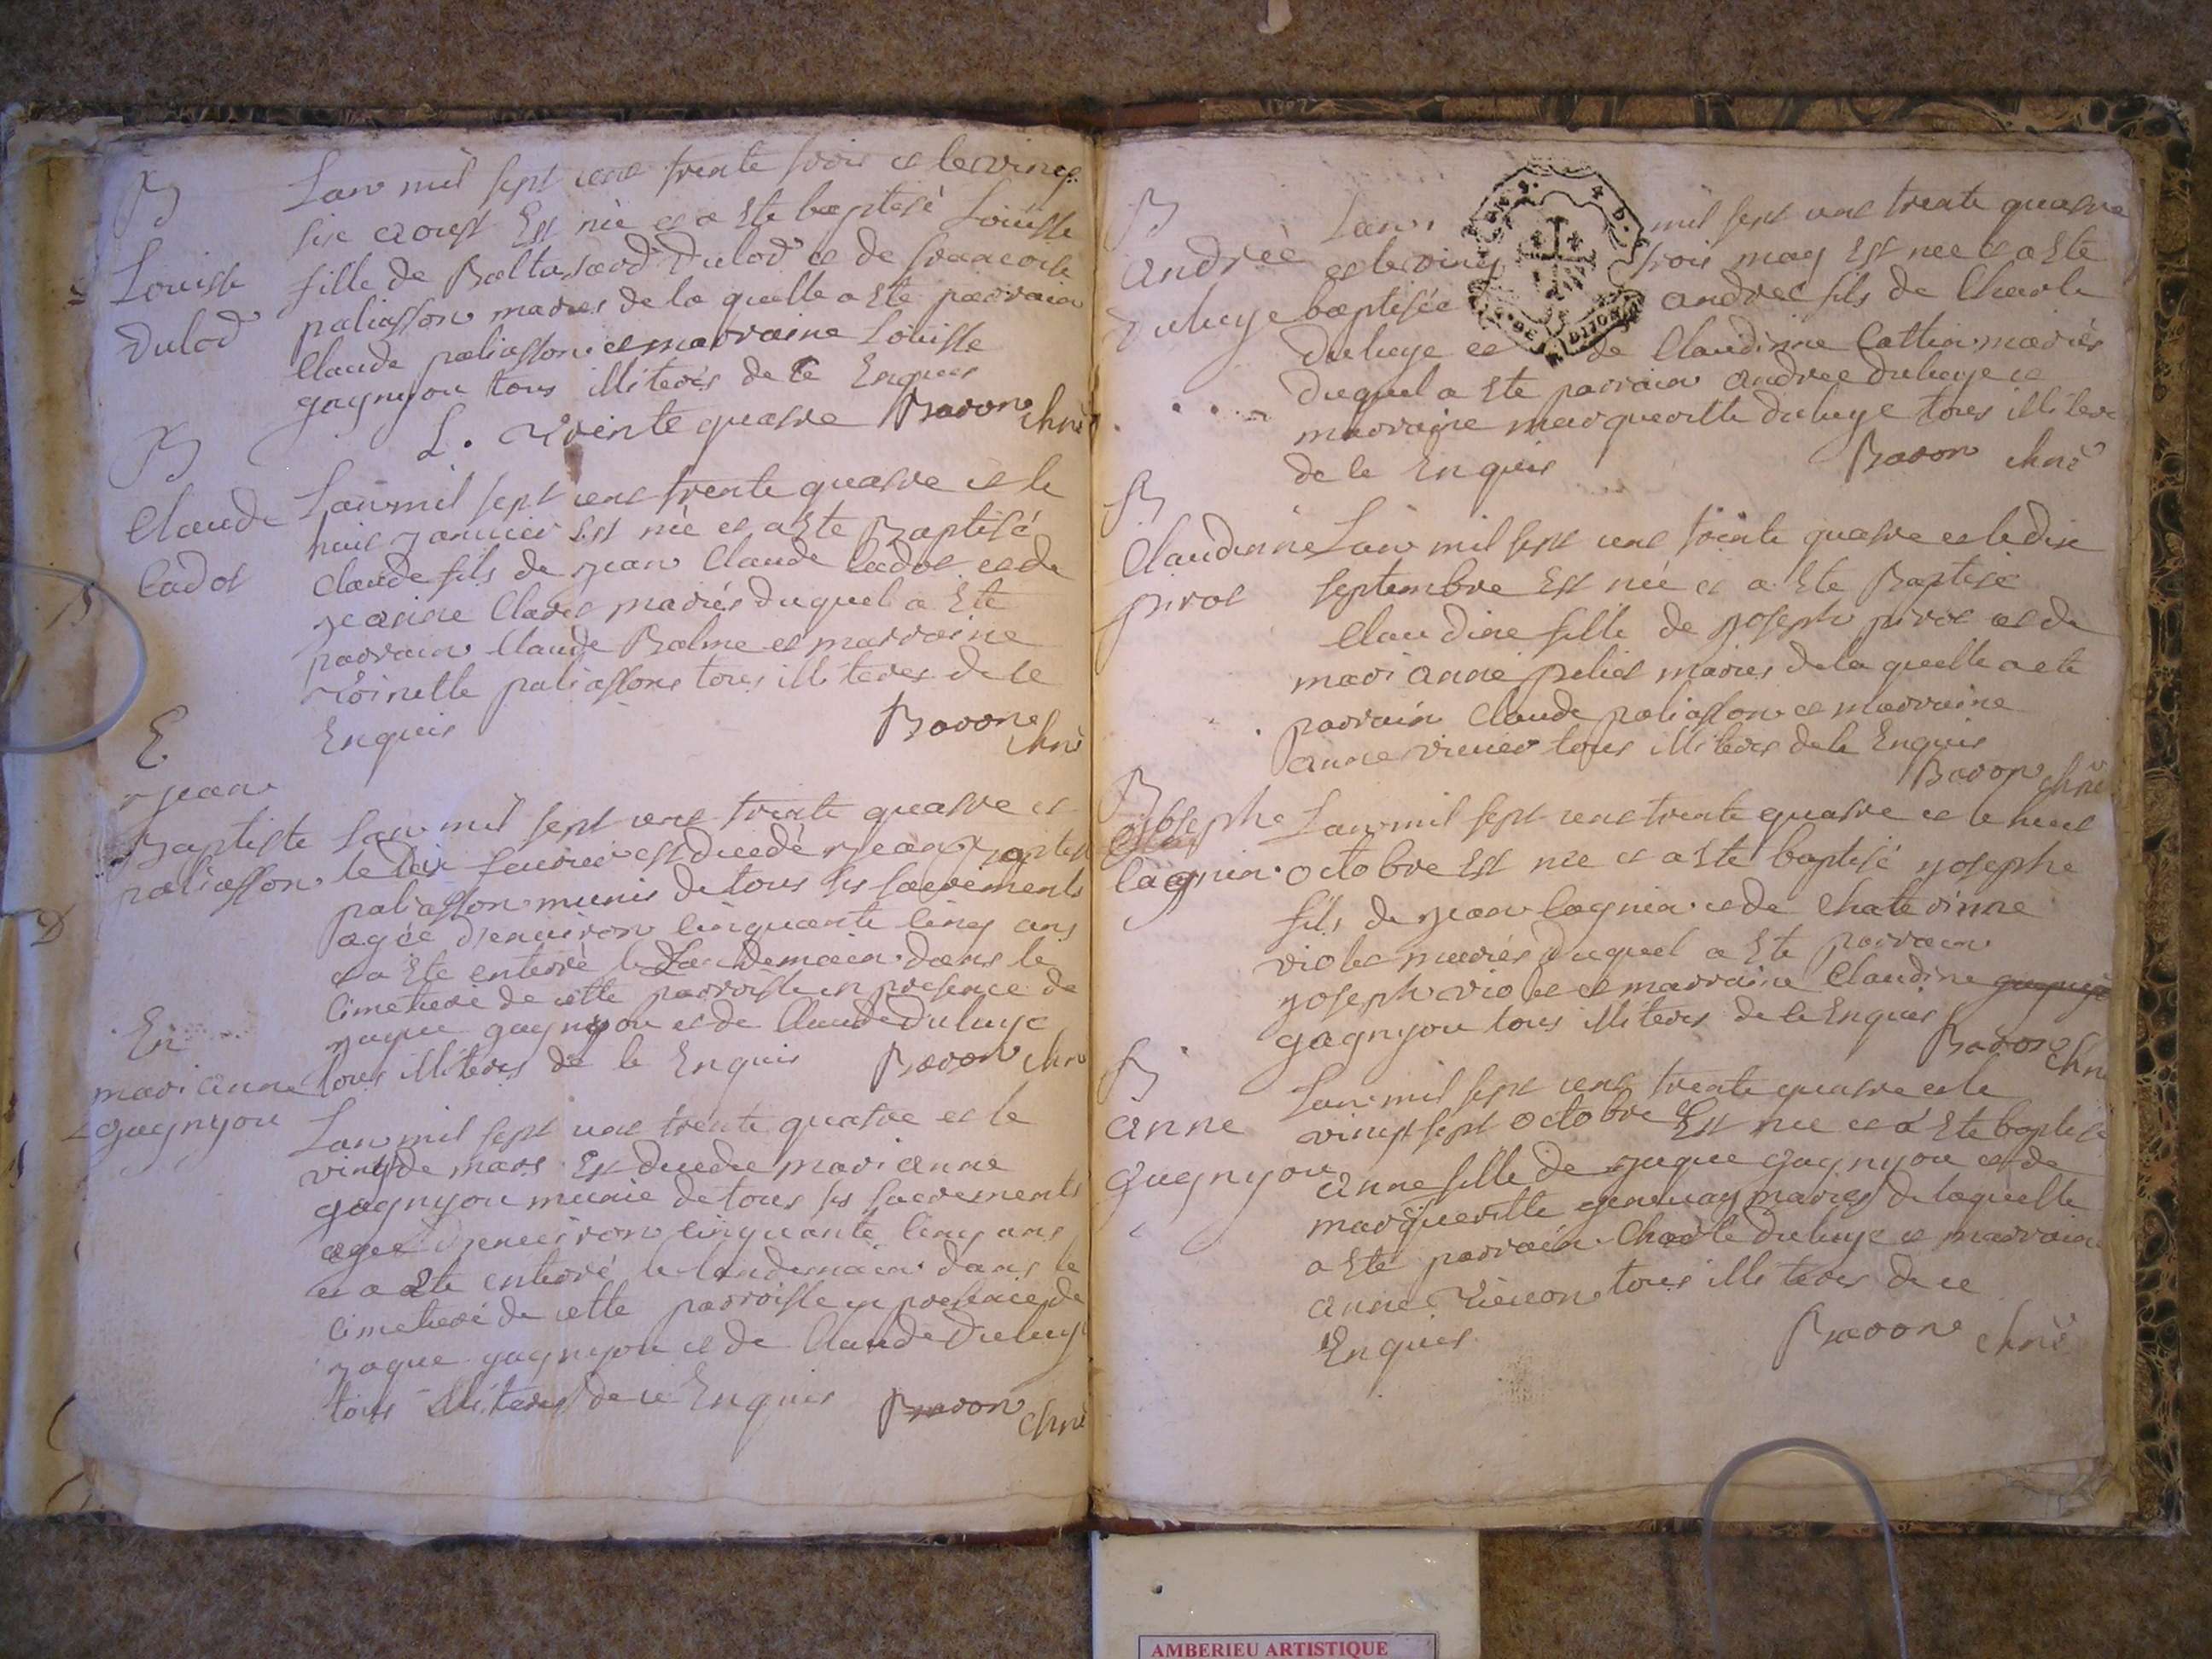 B
Louisse
Dulod
Lan mil sept cent trente trois et le vingt
six aoust Est née et a Ete baptisé Louisse
fille de Baltasard Dulod et de francoise
paliasson mariés de la quelle a Ete parrain
Claude paliasson et marraine Louisse
gagnyou tous illiterés de ce Enquis
Baron chne
L. Trente quatre
B
Claude
Cadot
Lan mil sept cent trente quatre et le
huit janvier Est né et a Ete Baptisé
Claude fils de jean Claude Cadot et de
jeanne Claret mariés duquel a Ete
parrain Claude Balme et marraine
Toinette paliasson tous illiterés de ce
Enquis
Baron
chne
E
jean
Baptiste
paliasson
Lan mil sept cent trente quatre et
le dix feuvrier est decedé jean Baptiste
paliasson munis de tous ses sacrements
agée d'enuiron cinquante cinq ans
et a Ete enterré le Landemain dans le
cimetiere de cette parroisse en presence de
jaque gagnyou et de Claude Duluye
tous illiterés de ce Enquis Baron chne
En
mari anne
gagnyou
Lan mil sept cent trente quatre et le
vingt de mars Est decedee mari anne
gagnyou munie de tous ses sacrements
agee d'enuiron cinquante cinq ans
et a Ete enterré le landemain dans le
cimetiere de cette parroisse en presence de
jaque gagnyou et de Claude Duluye
tous illiterés de ce Enquis Baron
chne
B
andrée
duluye
Lan mil sept cent trente quatre
et le vingt trois may Est nee et a Ete
baptisée andree fils de Charle
duluye et de Claudinne Cattin mariés
duquel a Ete parrain andree duluye et
marraine marqueritte duluye tous illiteré
de ce Enquis Baron chne
B
Claudinne
pirot
Lan mil sept cent trente quatre et le dix
septembre Est née et a Ete Baptisé
Claudine fille de joseph pirot et de
mari anne peliet mariés de la quelle a ete
parrain Claude paliasson et marraine
anne tous illiterés de ce Enquis
Baron chne
B
josephe
lagnin
Lan mil sept cent trente quatre et le huit
octobre Est née et a Ete baptisé josephe
fils de jean lagnin et de Chaterinne
violet mariés duquel a Ete parrain
joseph violet et marraine Claudine
gagnyou tous illiterés de ce Enquis
Baron chne
B
anne
gagnyou
Lan mil sept cent trente quatre et le
vingt sept octobre Est nee et a Ete baptisé
anne fille de jaque gagnyou et de
marqueritte mariés de la quelle
a Ete parrain Charle duluye et marraine
anne tous illiterés de ce
Enquis Baron chne
DE DIJON
AMBERIEU ARTISTIQUE